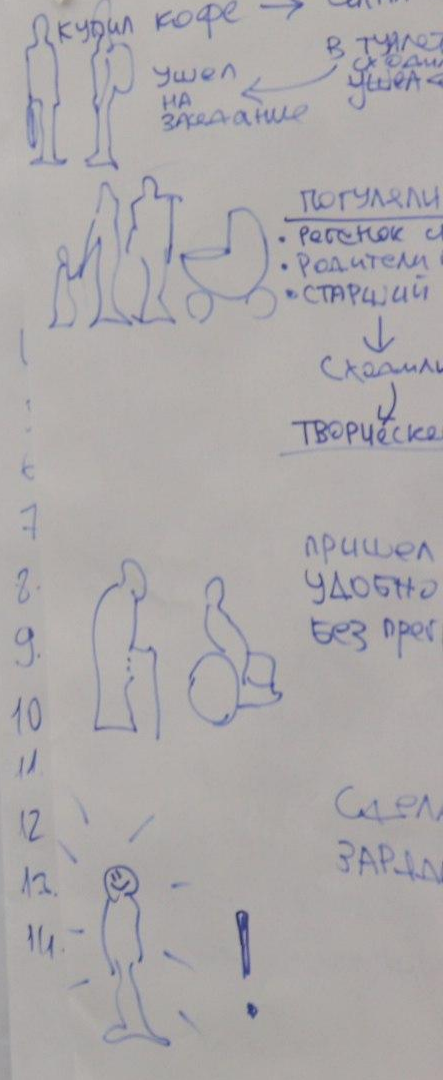 КУПИЛ КОФЕ →
В ТУАЛЕТ
СХОДИЛ
УШЕЛ
УШЕЛ
НА
ЗАСЕДАНИЕ
ПОГУЛЯЛИ
• РЕБЕНОК
• РОДИТЕЛИ
• СТАРШИЙ
СХОДИЛИ
ТВОРЧЕСКО
7
8.
9.
10
11.
12
13.
14.
ПРИШЕЛ
УДОБНО
БЕЗ ПРЕГ
СДЕЛ
ЗАРЯД
!